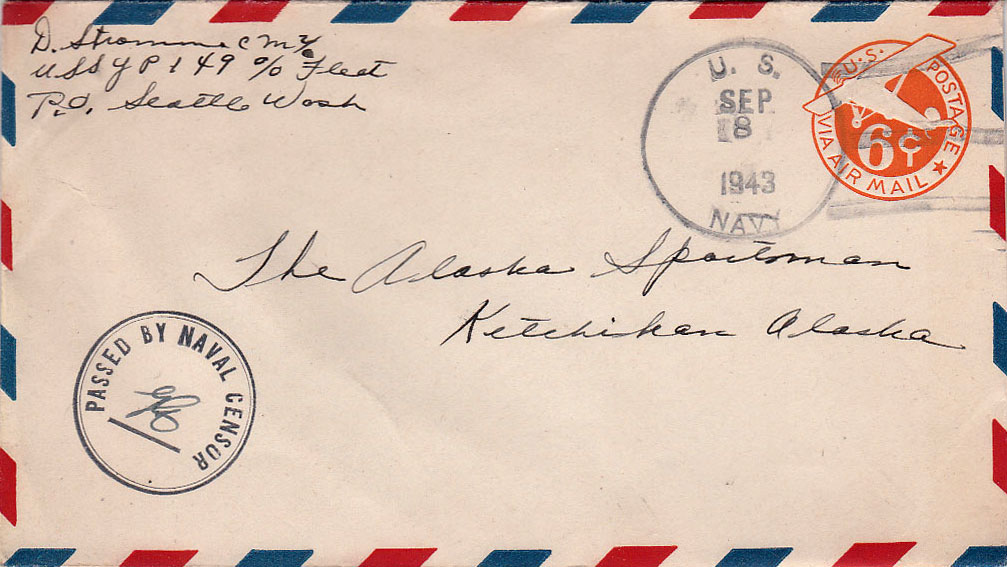 D. Stromm CM2/c
USS YP 149 c/o Fleet
P.O. Seattle Wash
U. S.
SEP
8
1943
NAVY
U.S. POSTAGE
6¢
VIA AIR MAIL
The Alaska Sportsman
Ketchikan Alaska
PASSED BY NAVAL CENSUR